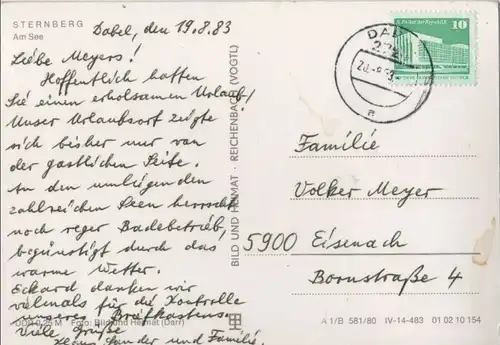 STERNBERG
Am See
Dabel, den 19.8.83
Liebe Meyers!
Hoffentlich hatten
Sie einen erholsamen Urlaub!
Unser Urlaubsort zeigte
sich bisher nur von
der gastlichen Seite.
An den umliegenden
zahlreichen Seen herrscht
noch reger Badebetrieb,
begünstigt durch das
warme Wetter.
Eckard danken wir
vielmals für die Kontrolle
unseres Briefkastens.
Viele Grüße
Klaus Sander und Familie.
Foto: Bild und Heimat (Darr)
BILD UND HEIMAT · REICHENBACH (VOGTL)
10
DAB
a
Familie
Volker Meyer
5900 Eisenach
Bornstraße 4
A 1/B 581/80 IV-14-483 01 02 10 154